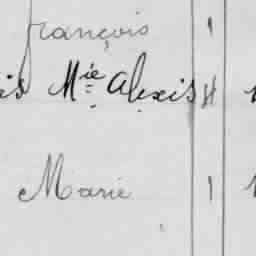 françois 1
is Mie Alexis H
Marie 1